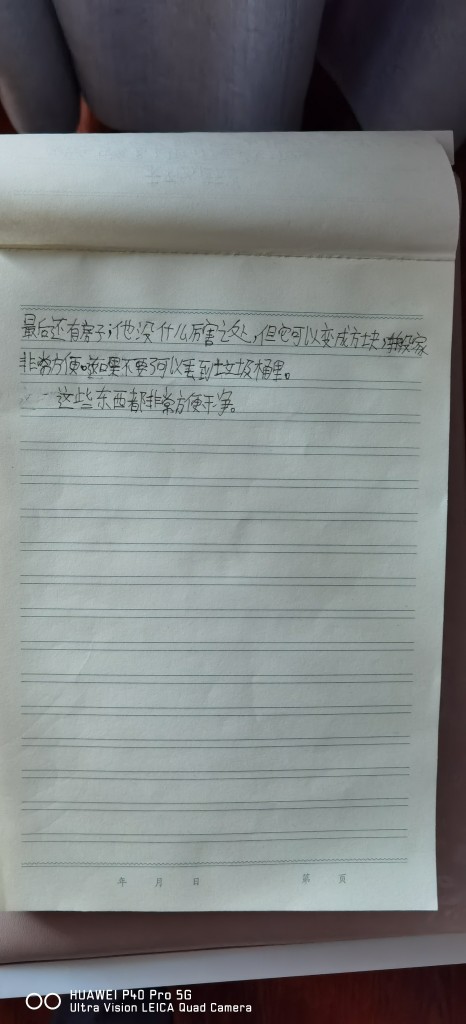 最后还有房子，他没什么厉害之处，但它可以变成方块，搬家
非常方便。如果不要了可以丢到垃圾桶里。
这些东西都非常方便干净。
年 月 日 第 页
HUAWEI P40 Pro 5G
Ultra Vision LEICA Quad Camera